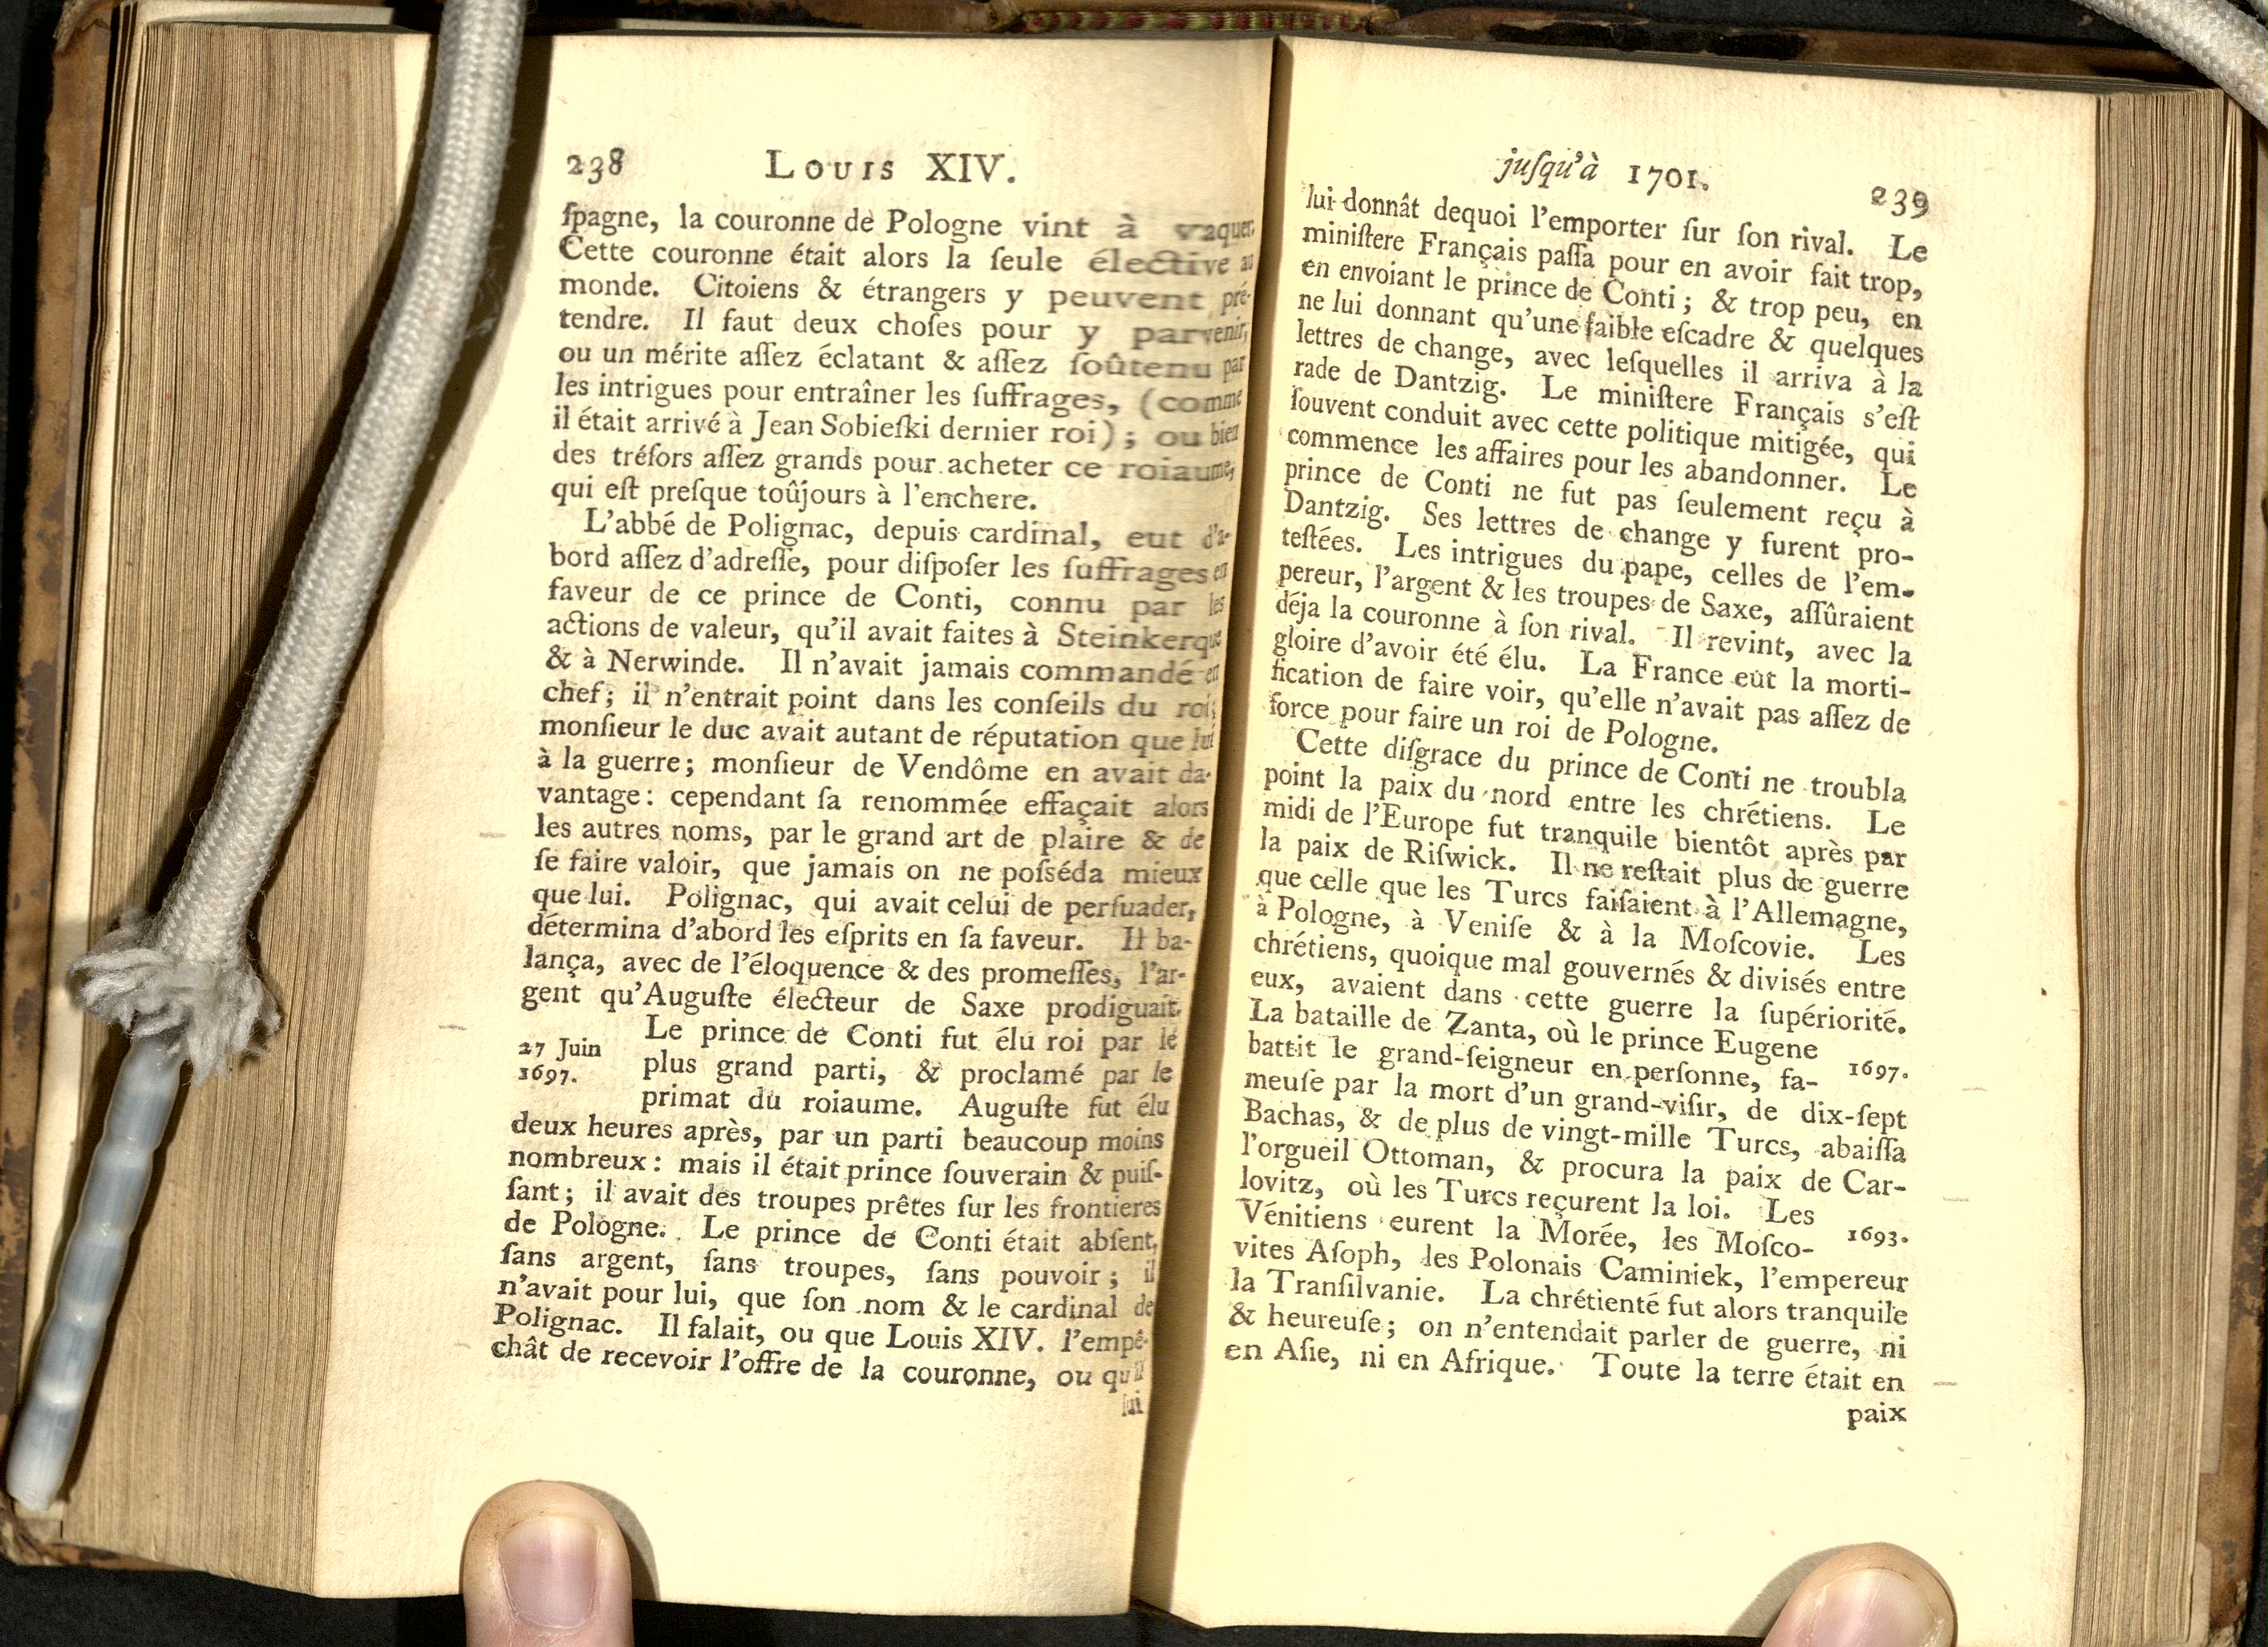 238 Louis XIV.
ſpagne, la couronne de Pologne vint à vaquer.
Cette couronne était alors la ſeule élective au
monde. Citoiens & étrangers y peuvent pré-
tendre. Il faut deux choſes pour y parvenir,
ou un mérite aſſez éclatant & aſſez ſoûtenu par
les intrigues pour entraîner les ſuffrages, (comme
il était arrivé à Jean Sobieſki dernier roi); ou bien
des tréſors aſſez grands pour acheter ce roiaume,
qui eſt preſque toûjours à l'enchere.
L'abbé de Polignac, depuis cardinal, eut d'a-
bord aſſez d'adreſſe, pour diſpoſer les ſuffrages en
faveur de ce prince de Conti, connu par les
actions de valeur, qu'il avait faites à Steinkerque
& à Nerwinde. Il n'avait jamais commandé en
chef; il n'entrait point dans les conſeils du roi;
monſieur le duc avait autant de réputation que lui
à la guerre; monſieur de Vendôme en avait da-
vantage: cependant ſa renommée effaçait alors
les autres noms, par le grand art de plaire & de
ſe faire valoir, que jamais on ne poſséda mieux
que lui. Polignac, qui avait celui de perſuader,
détermina d'abord les eſprits en ſa faveur. Il ba-
lança, avec de l'éloquence & des promeſſes, l'ar-
gent qu'Auguſte électeur de Saxe prodiguait.
Le prince de Conti fut élu roi par le
27 Juin plus grand parti, & proclamé par le
1697. primat du roiaume. Auguſte fut élu
deux heures après, par un parti beaucoup moins
nombreux: mais il était prince ſouverain & puiſ-
ſant; il avait des troupes prêtes ſur les frontieres
de Pologne. Le prince de Conti était abſent,
ſans argent, ſans troupes, ſans pouvoir; il
n'avait pour lui, que ſon nom & le cardinal de
Polignac. Il falait, ou que Louis XIV. l'empê-
chât de recevoir l'offre de la couronne, ou qu'il
lui
juſqu'à 1701. 239
lui donnât dequoi l'emporter ſur ſon rival. Le
miniſtere Français paſſa pour en avoir fait trop,
en envoiant le prince de Conti; & trop peu, en
ne lui donnant qu'une faible eſcadre & quelques
lettres de change, avec leſquelles il arriva à la
rade de Dantzig. Le miniſtere Français s'eſt
ſouvent conduit avec cette politique mitigée, qui
commence les affaires pour les abandonner. Le
prince de Conti ne fut pas ſeulement reçu à
Dantzig. Ses lettres de change y furent pro-
teſtées. Les intrigues du pape, celles de l'em-
pereur, l'argent & les troupes de Saxe, aſſûraient
déja la couronne à ſon rival. Il revint, avec la
gloire d'avoir été élu. La France eut la morti-
fication de faire voir, qu'elle n'avait pas aſſez de
force pour faire un roi de Pologne.
Cette diſgrace du prince de Conti ne troubla
point la paix du nord entre les chrétiens. Le
midi de l'Europe fut tranquile bientôt après par
la paix de Riſwick. Il ne reſtait plus de guerre
que celle que les Turcs faiſaient à l'Allemagne,
à Pologne, à Veniſe & à la Moſcovie. Les
chrétiens, quoique mal gouvernés & diviſés entre
eux, avaient dans cette guerre la ſupériorité.
La bataille de Zanta, où le prince Eugene
battit le grand-ſeigneur en perſonne, fa- 1697.
meuſe par la mort d'un grand-viſir, de dix-ſept
Bachas, & de plus de vingt-mille Turcs, abaiſſa
l'orgueil Ottoman, & procura la paix de Car-
lovitz, où les Turcs reçurent la loi. Les
Vénitiens eurent la Morée, les Moſco- 1693.
vites Aſoph, les Polonais Caminiek, l'empereur
la Tranſilvanie. La chrétienté fut alors tranquile
& heureuſe; on n'entendait parler de guerre, ni
en Aſie, ni en Afrique. Toute la terre était en
paix